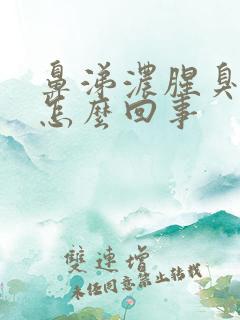 鼻涕浓腥臭
怎麽回事
雙連增
未经同意禁止转载